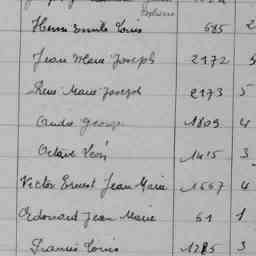 Henri Emile Louis 685 2
Jean Marie Joseph 2172 5
René Marie Joseph 2173 5
André George 1809 4
Octave Léon 1415 3
Victor Ernest Jean Marie 1667 4
Edouard Jean Marie 61 1
Francis Louis 1285 3